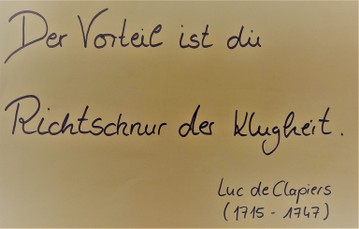 Der Vorteil ist die
Richtschnur der Klugheit.
Luc de Clapiers
(1715 - 1747)